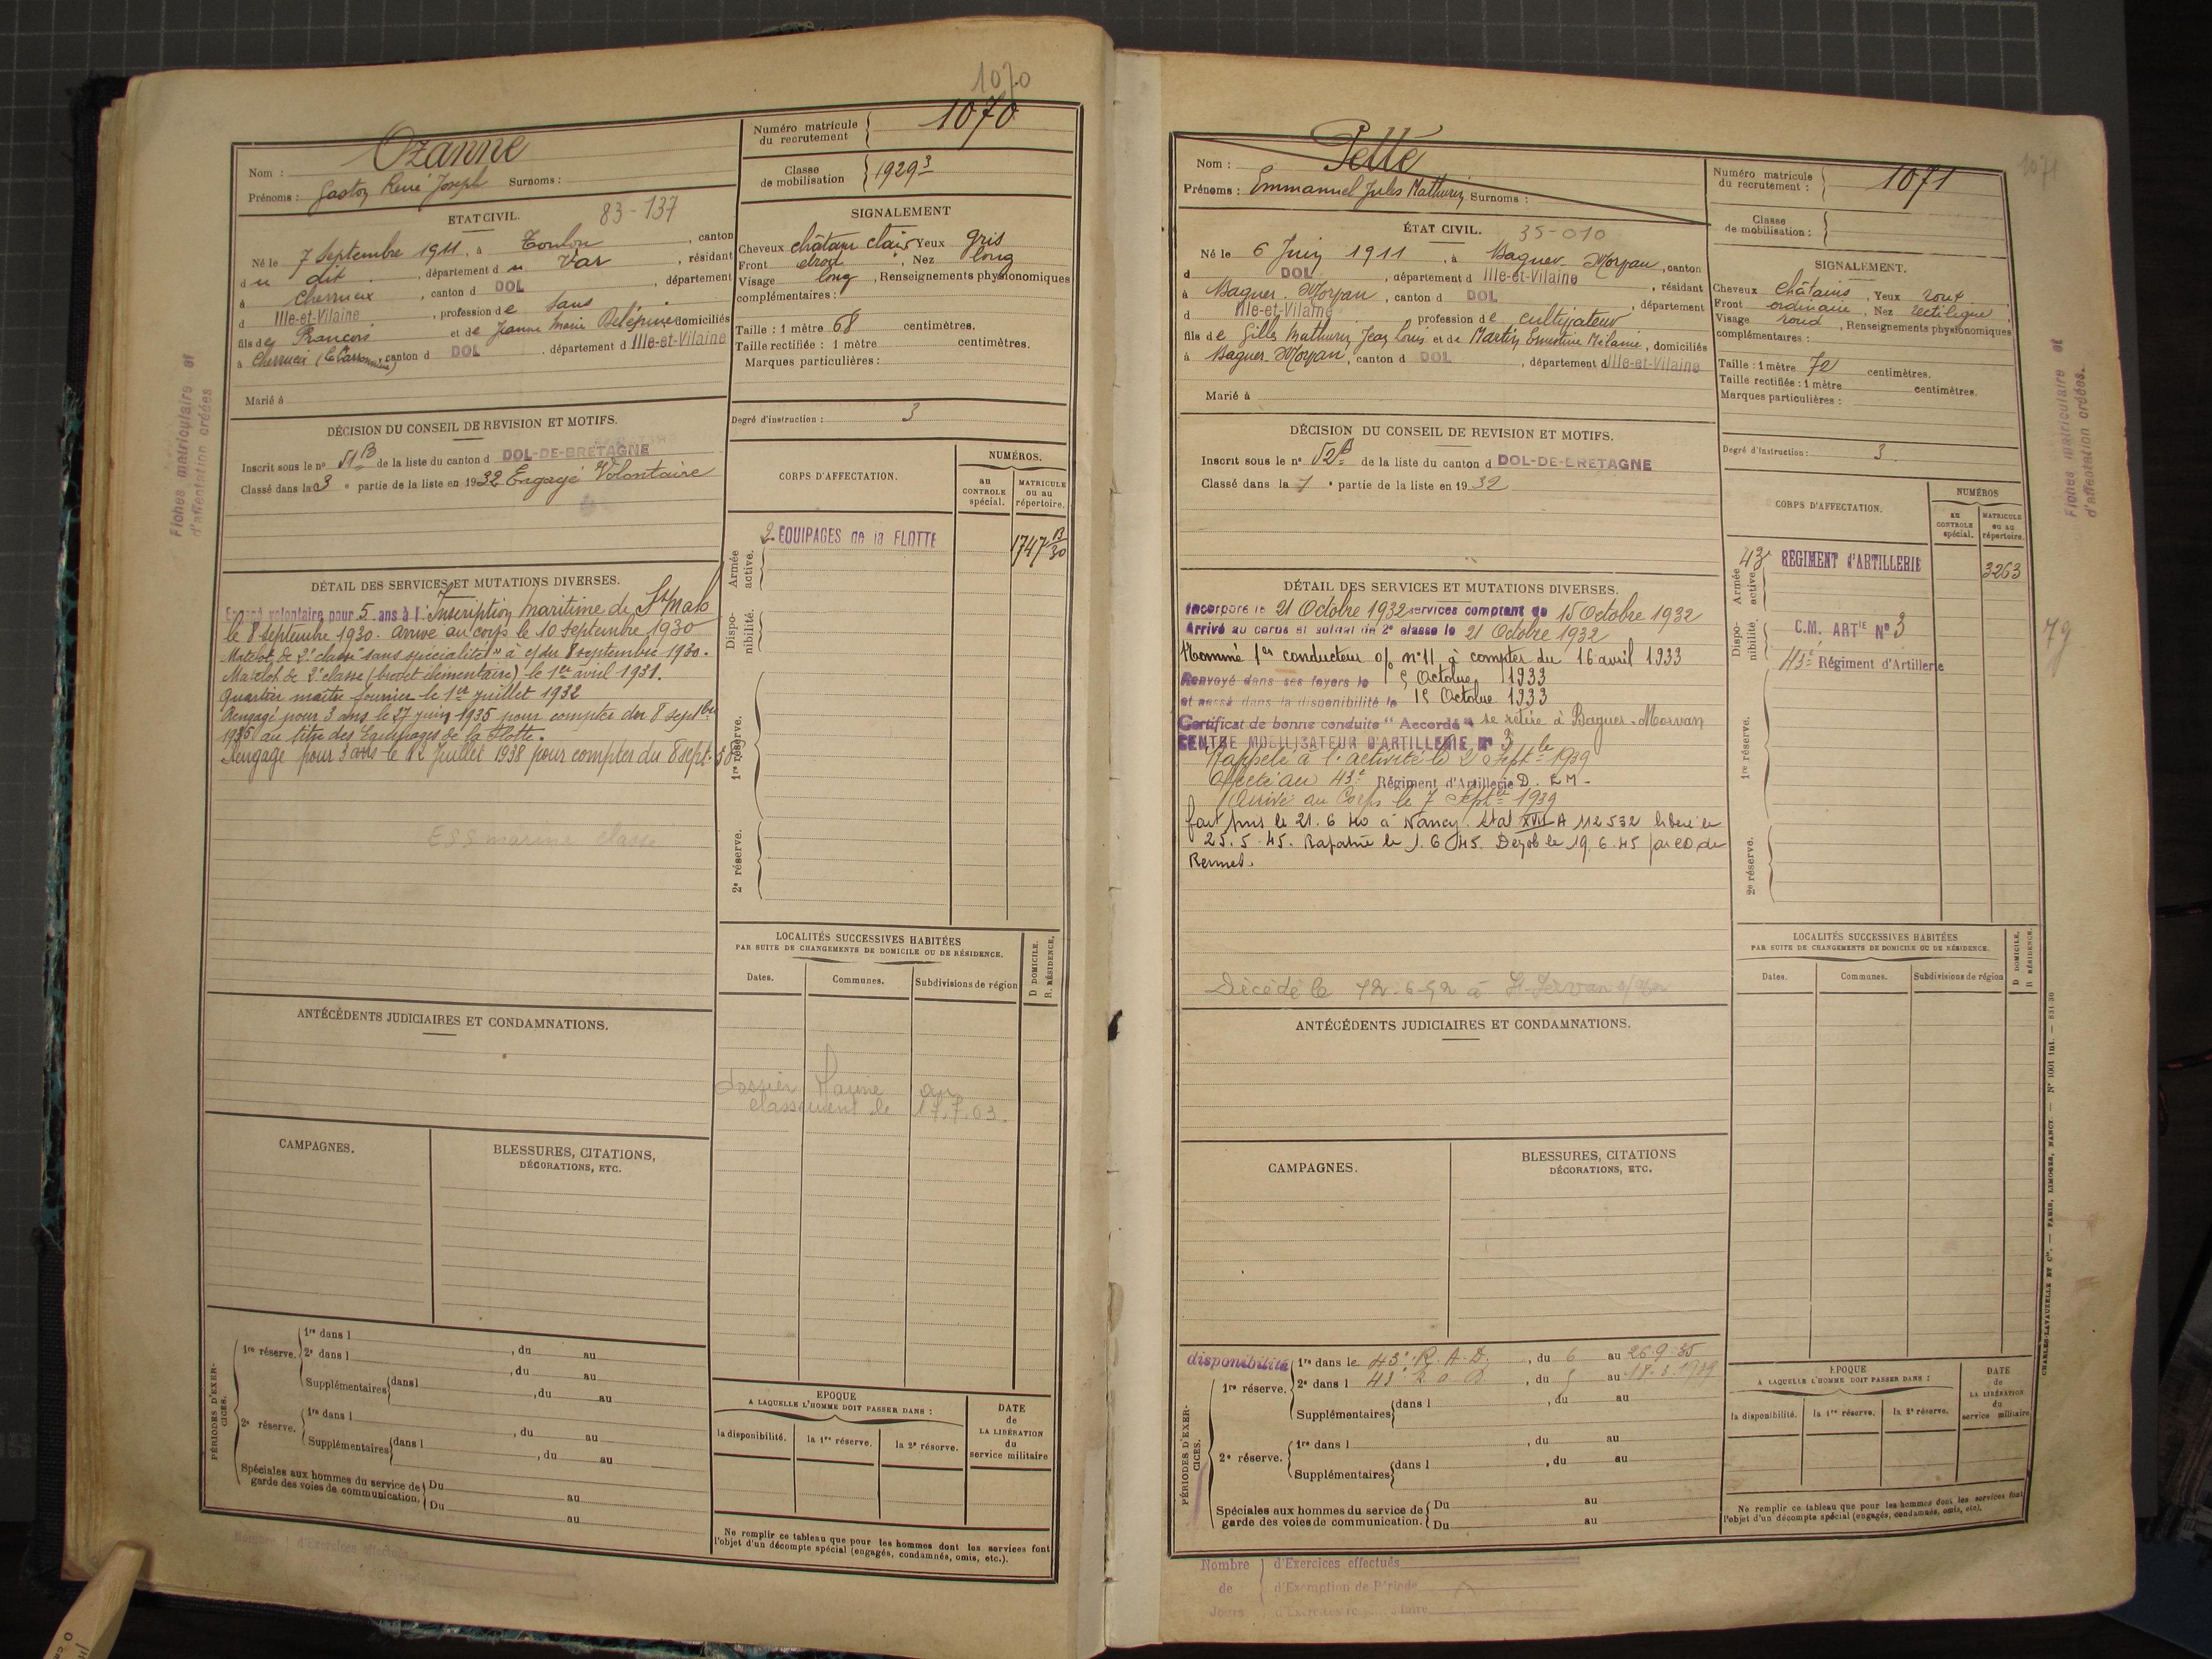 1070
Ozanne
Nom :
Prénoms : Gaston René Joseph Surnoms :
Numéro matricule du recrutement 1070
Classe de mobilisation 1929 3
ETAT CIVIL. 83-137
Né le 7 Septembre 1911, à Toulon, canton
du dit, département du Var, résidant
à Cherrueix, canton d DOL, département
d Ille-et-Vilaine, profession de sans
fils de François et de Jeanne Marie Delépine domiciliés
à Cherrueix, canton d DOL, département d Ille-et-Vilaine
Marié à
SIGNALEMENT
Cheveux châtain clair Yeux gris
Front droit, Nez long
Visage long, Renseignements physionomiques
complémentaires :
Taille : 1 mètre 68 centimètres.
Taille rectifiée : 1 mètre centimètres.
Marques particulières :
Degré d'instruction : 3
DÉCISION DU CONSEIL DE REVISION ET MOTIFS.
Inscrit sous le n° 51 B de la liste du canton d DOL-DE-BRETAGNE
Classé dans la 3 e partie de la liste en 1932 Engagé Volontaire
CORPS D'AFFECTATION.
NUMÉROS.
au CONTROLE spécial.
MATRICULE ou au répertoire.
Armée active.
2. EQUIPAGES de la FLOTTE
1747 B/30
Dispo-nibilité.
1re réserve.
2e réserve.
DÉTAIL DES SERVICES ET MUTATIONS DIVERSES.
Engagé volontaire pour 5 ans à l'Inscription maritime de St Malo
le 8 septembre 1930. Arrivé au corps le 10 septembre 1930
Matelot de 2e classe "sans spécialité" à c/ du 8 septembre 1930.
Matelot de 2e classe (brevet élémentaire) le 1er avril 1931.
Quartier maître fourrier le 1er juillet 1932
Rengagé pour 3 ans le 27 juin 1935 pour compter du 8 septbre
1935 au titre des Equipages de la Flotte.
Rengagé pour 3 ans le 12 Juillet 1938 pour compter du 8 sept. 38
ESS marine classé
LOCALITÉS SUCCESSIVES HABITÉES
PAR SUITE DE CHANGEMENTS DE DOMICILE OU DE RÉSIDENCE.
Dates. Communes. Subdivisions de région
D DOMICILE. R. RÉSIDENCE.
dossier Marine au
classement le 17.7.63.
ANTÉCÉDENTS JUDICIAIRES ET CONDAMNATIONS.
CAMPAGNES.
BLESSURES, CITATIONS,
DÉCORATIONS, ETC.
PÉRIODES D'EXER-CICES.
1re réserve. 1re dans l , du au
2e dans l , du au
Supplémentaires dans l , du au
2e réserve. 1re dans l , du au
Supplémentaires dans l , du au
Spéciales aux hommes du service de Du au
garde des voies de communication. Du au
EPOQUE
A LAQUELLE L'HOMME DOIT PASSER DANS :
la disponibilité. la 1re réserve. la 2e réserve.
DATE de LA LIBÉRATION du service militaire
Ne remplir ce tableau que pour les hommes dont les services font
l'objet d'un décompte spécial (engagés, condamnés, omis, etc.).
Nombre d'Exercices effectués
Fiches matriculaire et
d'affectation créées
1071
Petté
Nom :
Prénoms : Emmanuel Jules Mathurin Surnoms :
Numéro matricule du recrutement : 1071
Classe de mobilisation :
ÉTAT CIVIL. 35-010
Né le 6 Juin 1911, à Baguer-Morvan, canton
d DOL, département d Ille-et-Vilaine, résidant
à Baguer-Morvan, canton d DOL, département
d Ille-et-Vilaine profession de cultivateur
fils de Gilles Mathurin Jean Louis et de Martin Ernestine Mélanie, domiciliés
à Baguer-Morvan, canton d DOL, département d Ille-et-Vilaine
Marié à
SIGNALEMENT.
Cheveux châtains, Yeux roux
Front ordinaire, Nez rectiligne
Visage rond, Renseignements physionomiques
complémentaires :
Taille : 1 mètre 72 centimètres.
Taille rectifiée : 1 mètre centimètres.
Marques particulières :
Degré d'instruction : 3
DÉCISION DU CONSEIL DE REVISION ET MOTIFS.
Inscrit sous le n° 52 B de la liste du canton d DOL-DE-BRETAGNE
Classé dans la 1 e partie de la liste en 1932
CORPS D'AFFECTATION.
NUMÉROS
au CONTROLE spécial.
MATRICULE ou au répertoire.
Armée active.
43e RÉGIMENT d'ARTILLERIE
3263
Dispo-nibilité.
C.M. ARTIE N° 3
43e Régiment d'Artillerie
79
1re réserve.
2e réserve.
DÉTAIL DES SERVICES ET MUTATIONS DIVERSES.
Incorporé le 21 Octobre 1932 services comptant du 15 Octobre 1932
Arrivé au corps et soldat de 2e classe le 21 Octobre 1932
Nommé 1er conducteur o/ n°11 à compter du 16 avril 1933
Renvoyé dans ses foyers le 15 Octobre 1933
et passé dans la disponibilité le 15 Octobre 1933
Certificat de bonne conduite "Accordé" se retire à Baguer-Morvan
CENTRE MOBILISATEUR D'ARTILLERIE N° 3
Rappelé à l'activité le 2 Septbre 1939
Affecté au 43e Régiment d'Artillerie D. LM.
Arrivé au Corps le 7 Septbre 1939
fait pris le 21.6.40 à Nancy. Stal XVII A 112532 libéré le
25.5.45. Rapatrié le 1.6.45. Démob le 19.6.45 par CD de
Rennes.
Décédé le 12.6.52 à St-Servan s/Mer
LOCALITÉS SUCCESSIVES HABITÉES
PAR SUITE DE CHANGEMENTS DE DOMICILE OU DE RÉSIDENCE.
Dates. Communes. Subdivisions de région
D DOMICILE. R RÉSIDENCE.
ANTÉCÉDENTS JUDICIAIRES ET CONDAMNATIONS.
CAMPAGNES.
BLESSURES, CITATIONS
DÉCORATIONS, ETC.
PÉRIODES D'EXER-CICES.
disponibilité 1re dans le 43e R.A.D., du 6 au 26.9.35
1re réserve. 2e dans l 43e R.A.D., du au 18.3.1939
Supplémentaires dans l , du au
2e réserve. 1re dans l , du au
Supplémentaires dans l , du au
Spéciales aux hommes du service de Du au
garde des voies de communication. Du au
EPOQUE
A LAQUELLE L'HOMME DOIT PASSER DANS :
la disponibilité. la 1re réserve. la 2e réserve.
DATE de LA LIBÉRATION du service militaire
Ne remplir ce tableau que pour les hommes dont les services font
l'objet d'un décompte spécial (engagés, condamnés, omis, etc).
Nombre d'Exercices effectués
de d'Exemption de Période
Jours
Fiches matriculaire et
d'affectation créées.
CHARLES-LAVAUZELLE ET Cie. — PARIS, LIMOGES, NANCY. — N° 1001 int. — 831-30